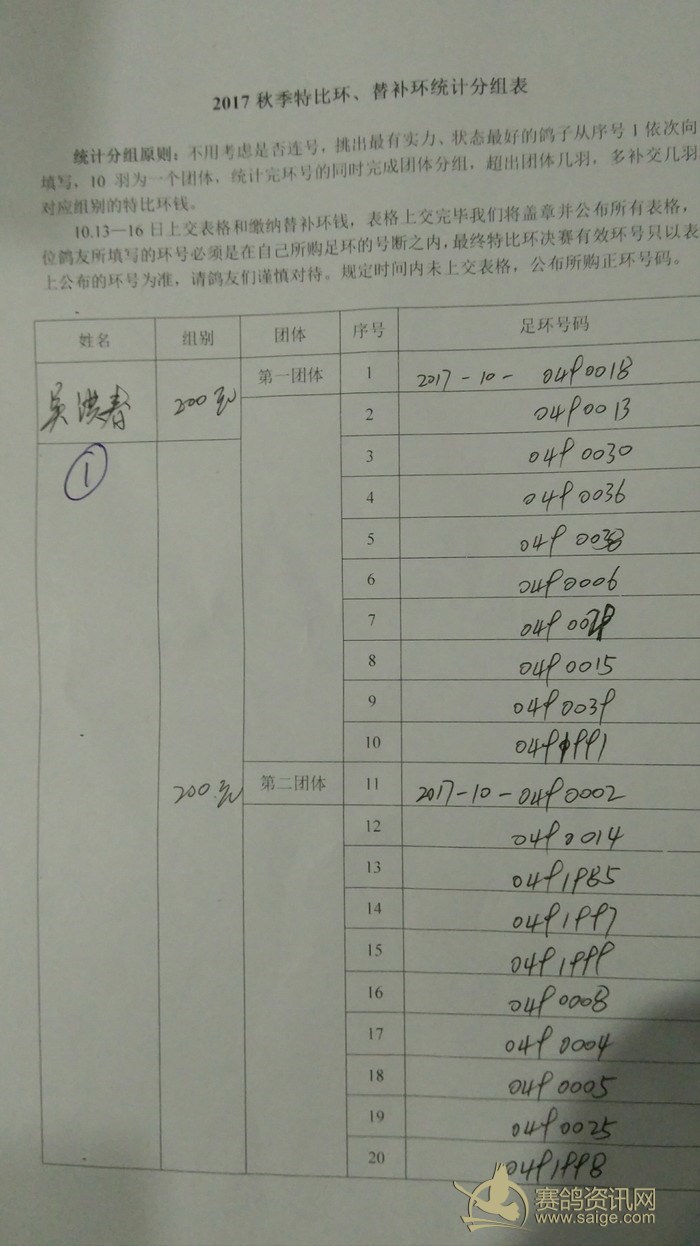 2017 秋季特比环、替补环统计分组表
统计分组原则：不用考虑是否连号，挑出最有实力、状态最好的鸽子从序号 1 依次向
填写，10 羽为一个团体，统计完环号的同时完成团体分组，超出团体几羽，多补交几羽
对应组别的特比环钱。
10.13—16 日上交表格和缴纳替补环钱，表格上交完毕我们将盖章并公布所有表格，
位鸽友所填写的环号必须是在自己所购足环的号断之内，最终特比环决赛有效环号只以表
上公布的环号为准，请鸽友们谨慎对待。规定时间内未上交表格，公布所购正环号码。
姓名 组别 团体 序号 足环号码
吴洪春 200元 第一团体 1 2017-10- 0490018
2 0490013
① 3 0490030
4 0490036
5 0490038
6 0490006
7 049002
8 0490015
9 0490039
10 0491991
200元 第二团体 11 2017-10-0490002
12 0490014
13 0491985
14 0491997
15 0491999
16 0490008
17 0490004
18 0490005
19 0490025
20 0491998
赛鸽资讯网
www.saige.com